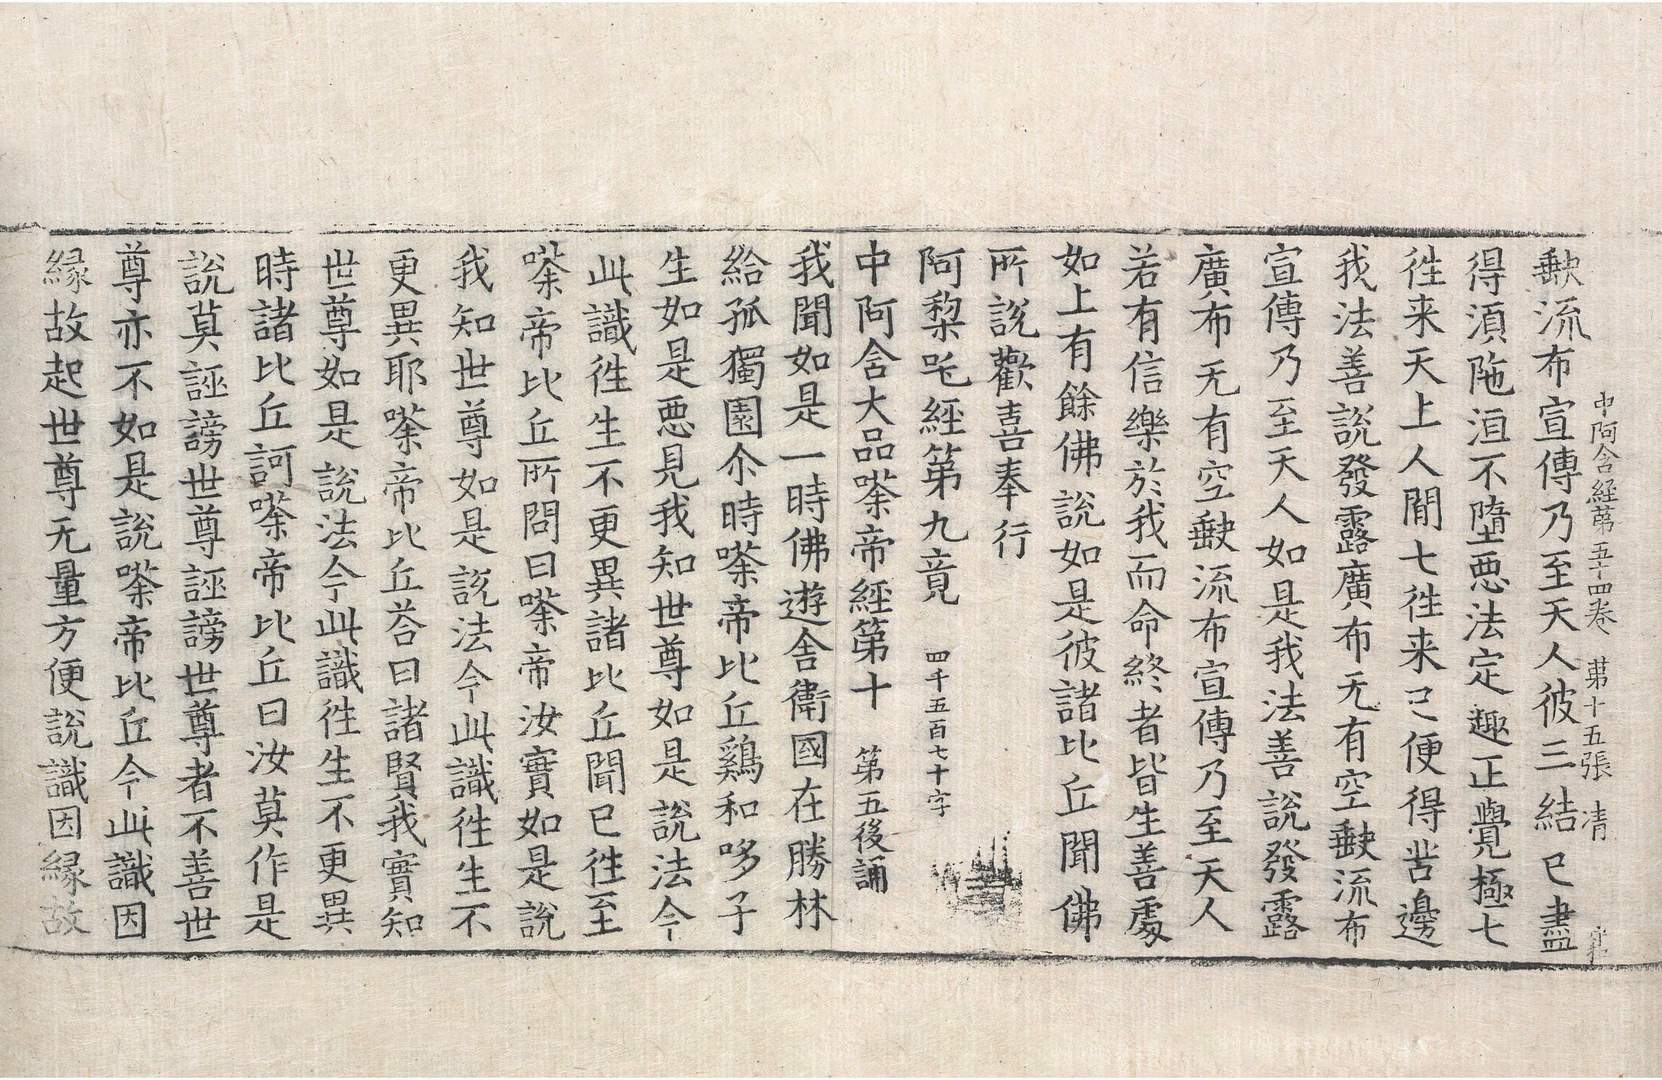 中阿含経苐五十四巻　苐十五張　清
𡙇流布宣傳乃至天人彼三結已盡
得湏陁洹不墮惡法定趣正覺極七
徃来天上人間七徃来已便得苦邊
我法善說發露廣布无有空𡙇流布
宣傳乃至天人如是我法善說發露
廣布无有空𡙇流布宣傳乃至天人
若有信樂於我而命終者皆生善處
如上有餘佛說如是彼諸比丘聞佛
所說歡喜奉行
阿梨吒經第九竟　四千五百七十字
中阿含大品㗚帝經第十　第五後誦
我聞如是一時佛遊舍衛國在勝林
給孤獨園尒時㗚帝比丘鷄和哆子
生如是惡見我知世尊如是說法今
此識徃生不更異諸比丘聞已徃至
㗚帝比丘所問曰㗚帝汝實如是說
我知世尊如是說法今此識徃生不
更異耶㗚帝比丘荅曰諸賢我實知
世尊如是說法今此識徃生不更異
時諸比丘訶㗚帝比丘曰汝莫作是
說莫誣謗世尊誣謗世尊者不善世
尊亦不如是說㗚帝比丘今此識因
緣故起世尊无量方便說識因緣故